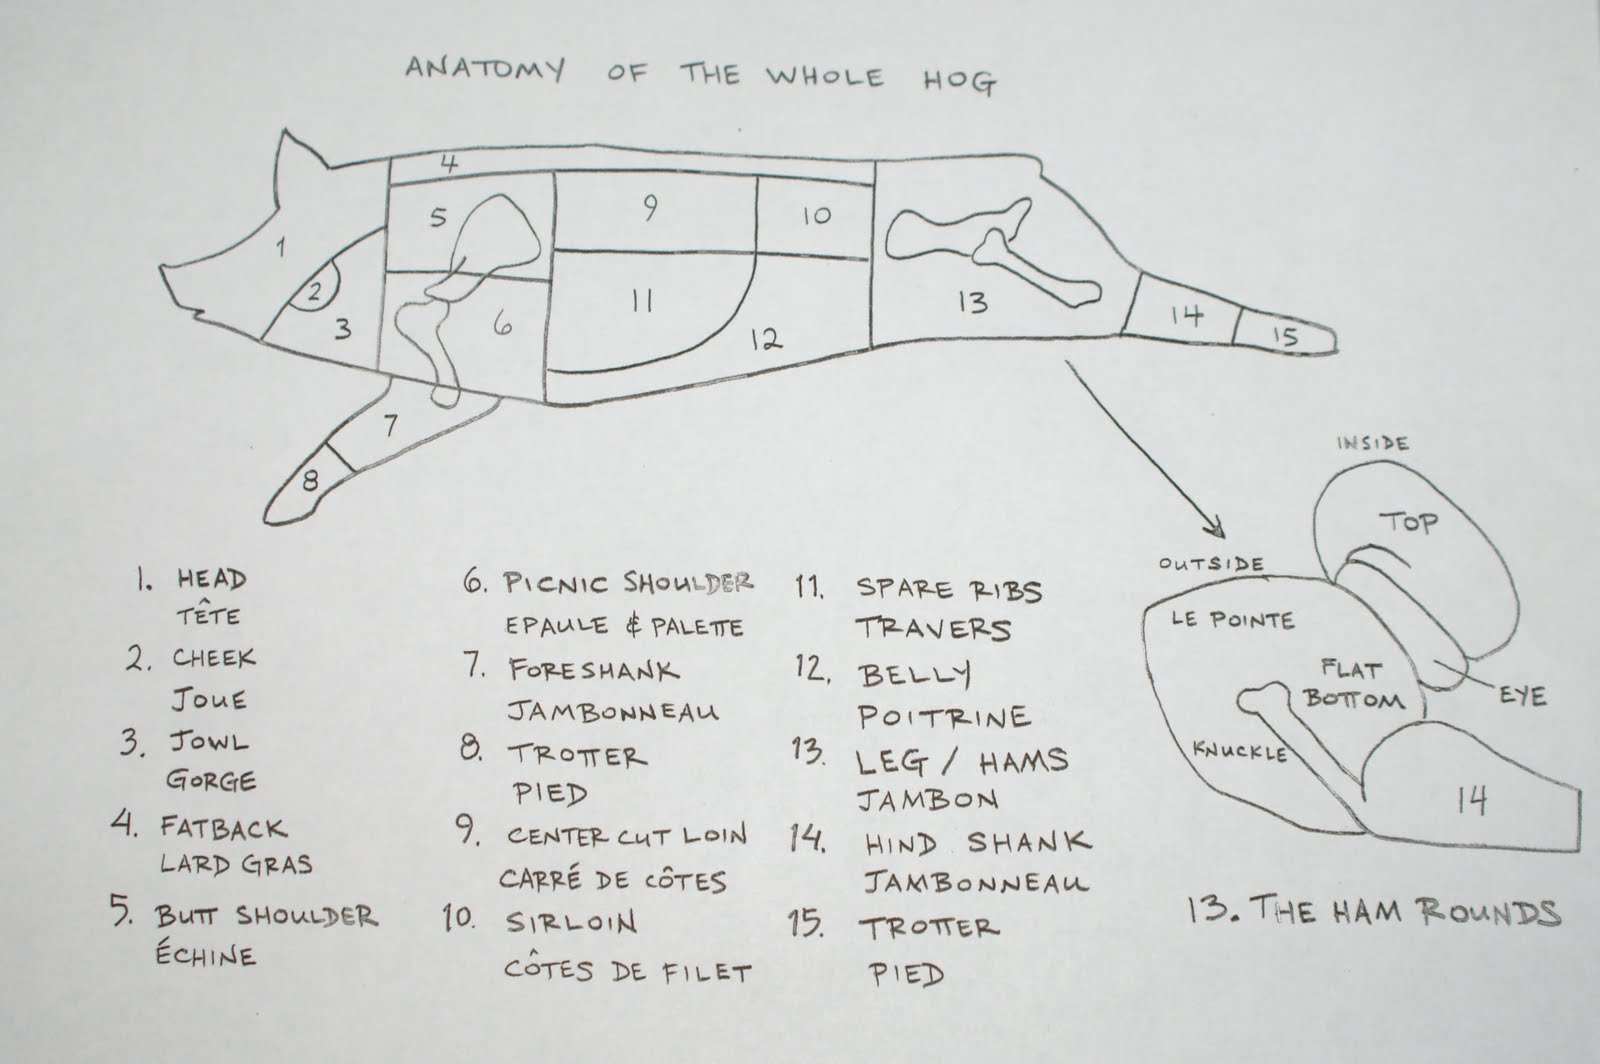 ANATOMY OF THE WHOLE HOG
1
2
3
4
5
6
7
8
9
10
11
12
13
14
15
1. HEAD
TÊTE
2. CHEEK
JOUE
3. JOWL
GORGE
4. FATBACK
LARD GRAS
5. BUTT SHOULDER
ÉCHINE
6. PICNIC SHOULDER
EPAULE & PALETTE
7. FORESHANK
JAMBONNEAU
8. TROTTER
PIED
9. CENTER CUT LOIN
CARRÉ DE CÔTES
10. SIRLOIN
CÔTES DE FILET
11. SPARE RIBS
TRAVERS
12. BELLY
POITRINE
13. LEG / HAMS
JAMBON
14. HIND SHANK
JAMBONNEAU
15. TROTTER
PIED
INSIDE
TOP
OUTSIDE
LE POINTE
FLAT
BOTTOM
EYE
KNUCKLE
14
13. THE HAM ROUNDS